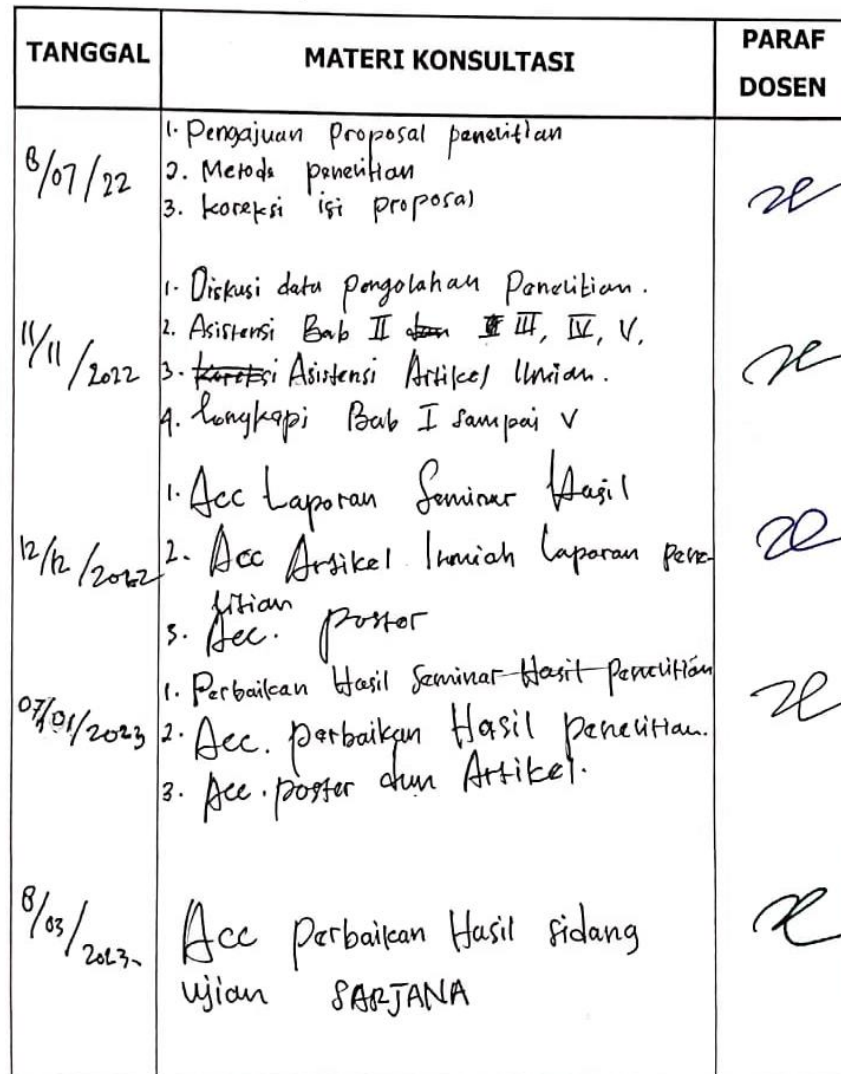 TANGGAL
MATERI KONSULTASI
PARAF
DOSEN
8/07/22
1. Pengajuan Proposal penelitian
2. Metode penelitian
3. koreksi isi proposal
11/11/2022
1. Diskusi data pengolahan Penelitian.
2. Asistensi Bab II dan III, IV, V.
3. koreksi Asistensi Artikel Ilmiah.
4. Lengkapi Bab I sampai V
12/12/2022
1. Acc Laporan Seminar Hasil
2. Acc Artikel Ilmiah Laporan pene-
litian
3. Acc. poster
07/01/2023
1. Perbaikan Hasil Seminar Hasil Penelitian
2. Acc. perbaikan Hasil penelitian.
3. Acc. poster dan Artikel.
8/03/2023-
Acc perbaikan Hasil sidang
ujian SARJANA